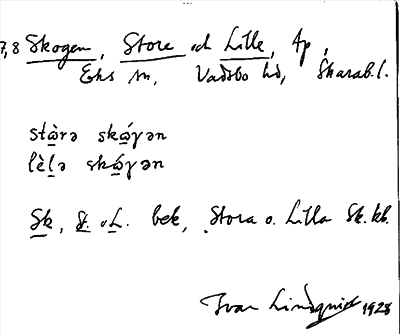 7,8 Skogen, Store och Lille, tp,
Eks sn, Vadsbo hd, Skarab.l.
stɷ̀rə skɷ́γən
lèlə skɷ́γən
Sk, St. o L. bek, Stora o. Lilla Sk. kb.
Ivar Lindquist 1928